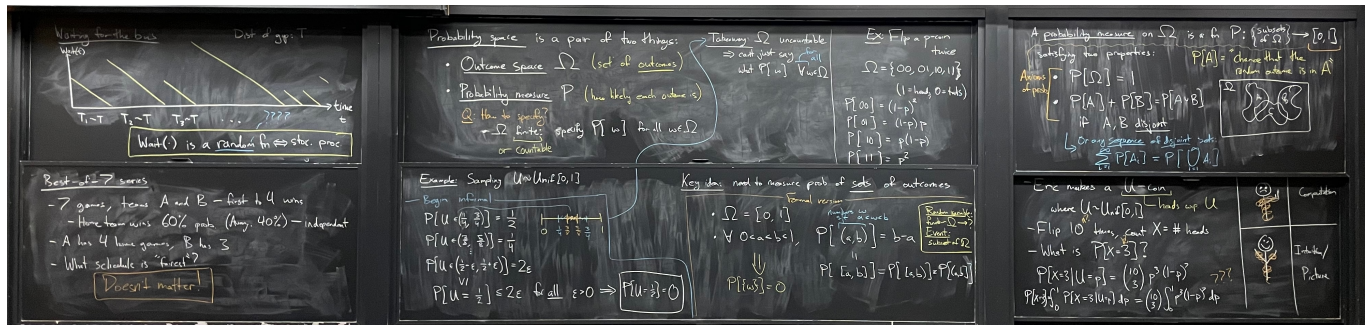 Waiting for the bus
Dist of gap: T
Wait(t)
time
t
T₁~T T₂~T T₃~T ... ????
Wait(·) is a random fn ⇔ stoc. proc
Best-of-7 series
- 7 games, teams A and B - first to 4 wins
- Home team wins 60% prob (Away, 40%) - independent
- A has 4 home games, B has 3
- What schedule is "fairest"?
Doesn't matter!
Probability space is a pair of two things:
• Outcome space Ω (set of outcomes)
• Probability measure P (how likely each outcome is)
Q: How to specify?
- Ω finite: specify P[ω] for all ω∈Ω
or countable
Takeaway: Ω uncountable
⇒ can't just say
what P[ω] ∀ω∈Ω
for all
Ex: Flip a p-coin
twice
Ω = {00, 01, 10, 11}
(1=heads, 0=tails)
P[00] = (1-p)²
P[01] = (1-p)p
P[10] = p(1-p)
P[11] = p²
Example: Sampling U~Unif[0,1]
- Begin informal
P[U∈(¼, ¾)] = ½
P[U∈(½-ε, ½+ε)] = 2ε
P[U=½] ≤ 2ε for all ε>0 ⇒ P[U=½]=0
Key idea: need to measure prob of sets of outcomes
Formal version
• Ω = [0, 1]
• ∀ 0<a<b<1, P[(a,b)] = b-a
P[[a,b]] = P[[a,b)] = P[(a,b]]
P[{ω}] = 0
Random variable:
Event:
subset of Ω
A probability measure on Ω is a fn P: {subsets of Ω} → [0,1]
satisfying two properties:
P[A] = "chance that the
random outcome is in A"
Axioms
of prob
• P[Ω] = 1
• P[A] + P[B] = P[A∪B]
if A, B disjoint
Ω
Or any sequence of disjoint sets:
- Eric makes a U-coin
where U~Unif[0,1]
heads wp U
- Flip 10 times, count X = # heads
- What is P[X=3]?
P[X=3|U=p] = (10 3) p³(1-p)⁷
???
P[X=3] = ∫₀¹ P[X=3|U=p] dp = (10 3) ∫₀¹ p³(1-p)⁷ dp
Computation
Intuition/
Picture